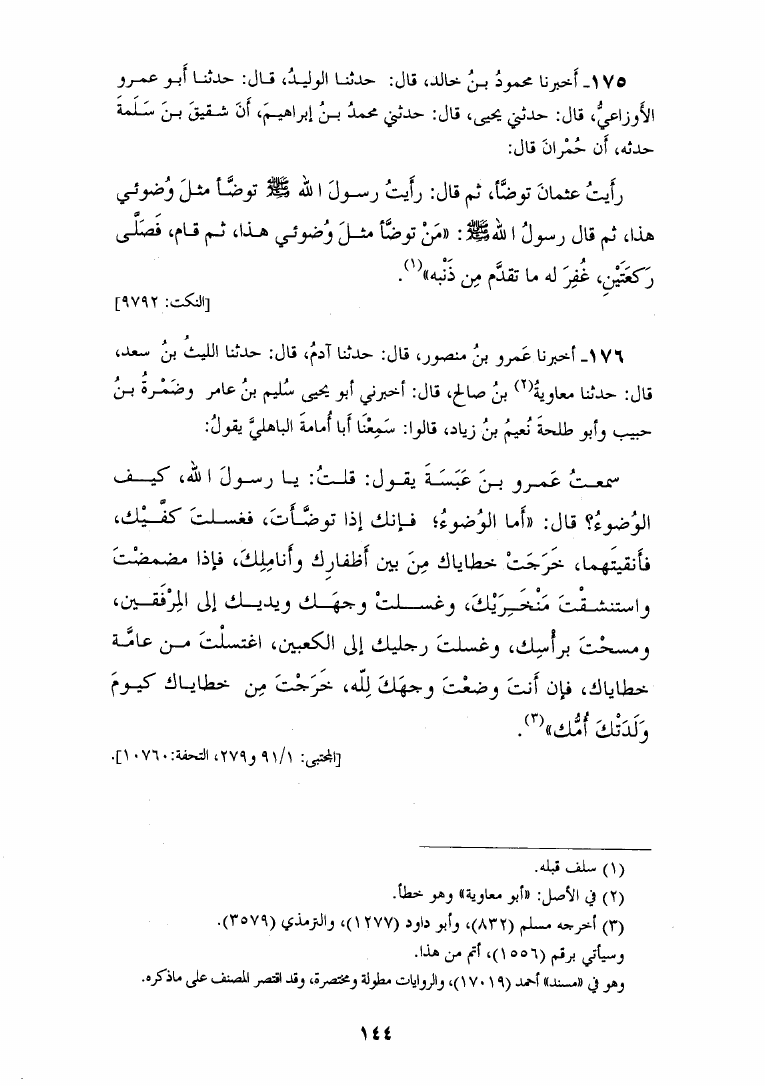 ١٧٥ـ أخبرنا محمودُ بنُ خالد، قال: حدثنا الوليدُ، قال: حدثنا أبو عمرو
الأوزاعيُّ، قال: حدثني يحيى، قال: حدثني محمدُ بنُ إبراهيمَ، أنَّ شقيقَ بنَ سَلَمةَ
حدثه، أن حُمْرانَ قال:
رأيتُ عثمانَ توضَّأ، ثم قال: رأيتُ رسولَ الله ﷺ توضَّأ مثلَ وُضوئي
هذا، ثم قال رسولُ الله ﷺ: «مَنْ توضَّأ مثلَ وُضوئي هذا، ثم قام، فَصَلَّى
رَكعَتَيْنِ، غُفِرَ له ما تقدَّم مِن ذَنْبه»(١).
[النكت: ٩٧٩٢]
١٧٦ـ أخبرنا عَمرو بنُ منصور، قال: حدثنا آدمُ، قال: حدثنا الليثُ بنُ سعد،
قال: حدثنا معاويةُ(٢) بنُ صالح، قال: أخبرني أبو يحيى سُليم بنُ عامر وضَمْرةُ بنُ
حبيب وأبو طلحةَ نُعيمُ بنُ زياد، قالوا: سَمِعْنَا أبا أُمامةَ الباهليَّ يقولُ:
سمعتُ عَمرو بنَ عَبَسَةَ يقول: قلتُ: يا رسولَ الله، كيف
الوُضوءُ؟ قال: «أما الوُضوءُ؛ فإنك إذا توضَّأت، فغسلتَ كفَّيْك،
فأنقيتَهما، خَرَجَتْ خطاياك مِنَ بين أظفارِك وأنامِلِكَ، فإذا مضمضْتَ
واستنشقْتَ مَنْخَرَيْكَ، وغسلتْ وجهَك ويديك إلى المِرْفَقَين،
ومسحْتَ برأسِك، وغسلتَ رجليك إلى الكعبين، اغتسلْتَ من عامَّة
خطاياك، فإن أنتَ وضعْتَ وجهَكَ للّه، خَرَجْتَ مِن خطاياك كيومَ
وَلَدَتْكَ أُمُّك»(٣).
[المجتبى: ٩١/١ و٢٧٩، التحفة: ١٠٧٦٠].
(١) سلف قبله.
(٢) في الأصل: «أبو معاوية» وهو خطأ.
(٣) أخرجه مسلم (٨٣٢)، وأبو داود (١٢٧٧)، والترمذي (٣٥٧٩).
وسيأتي برقم (١٥٥٦)، أتم من هذا.
وهو في «مسند» أحمد (١٧٠١٩)، والروايات مطولة ومختصرة، وقد اقتصر المصنف على ماذكره.
١٤٤